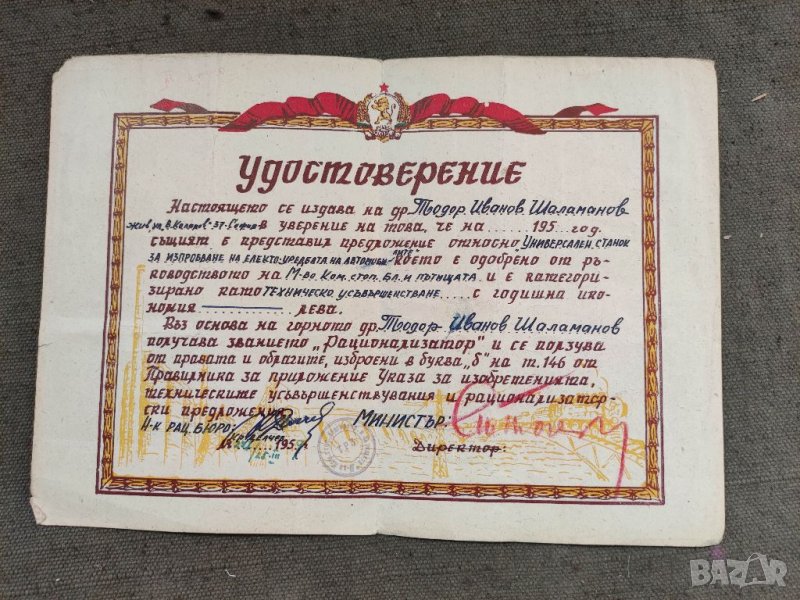 Удостоверение
Настоящето се издава на др. Тодор Иванов Шаламанов
жив. ул. В. Коларов - 37 - София в уверение на това, че на ...... 195 год.
същият е представил предложение относно „Универсален станок
за изпробване на електо-уредбата на автомоби-
лите" което е одобрено от ръ-
ководството на М-во Ком. стоп. бл. и пътищата и е категори-
зирано като техническо усъвършенстване ..... с годишна ико-
номия ——— лева.
Въз основа на горното др. Тодор Иванов Шаламанов
получава званието „Рационализатор" и се ползува
от правата и облагите, изброени в буква „б" на т. 146 от
Правилника за приложение Указа за изобретенията,
техническите усъвършенствувания и рационализатор-
ски предложения.
Н-к рац. бюро:
Министър:
195
Директор:
BAZAR